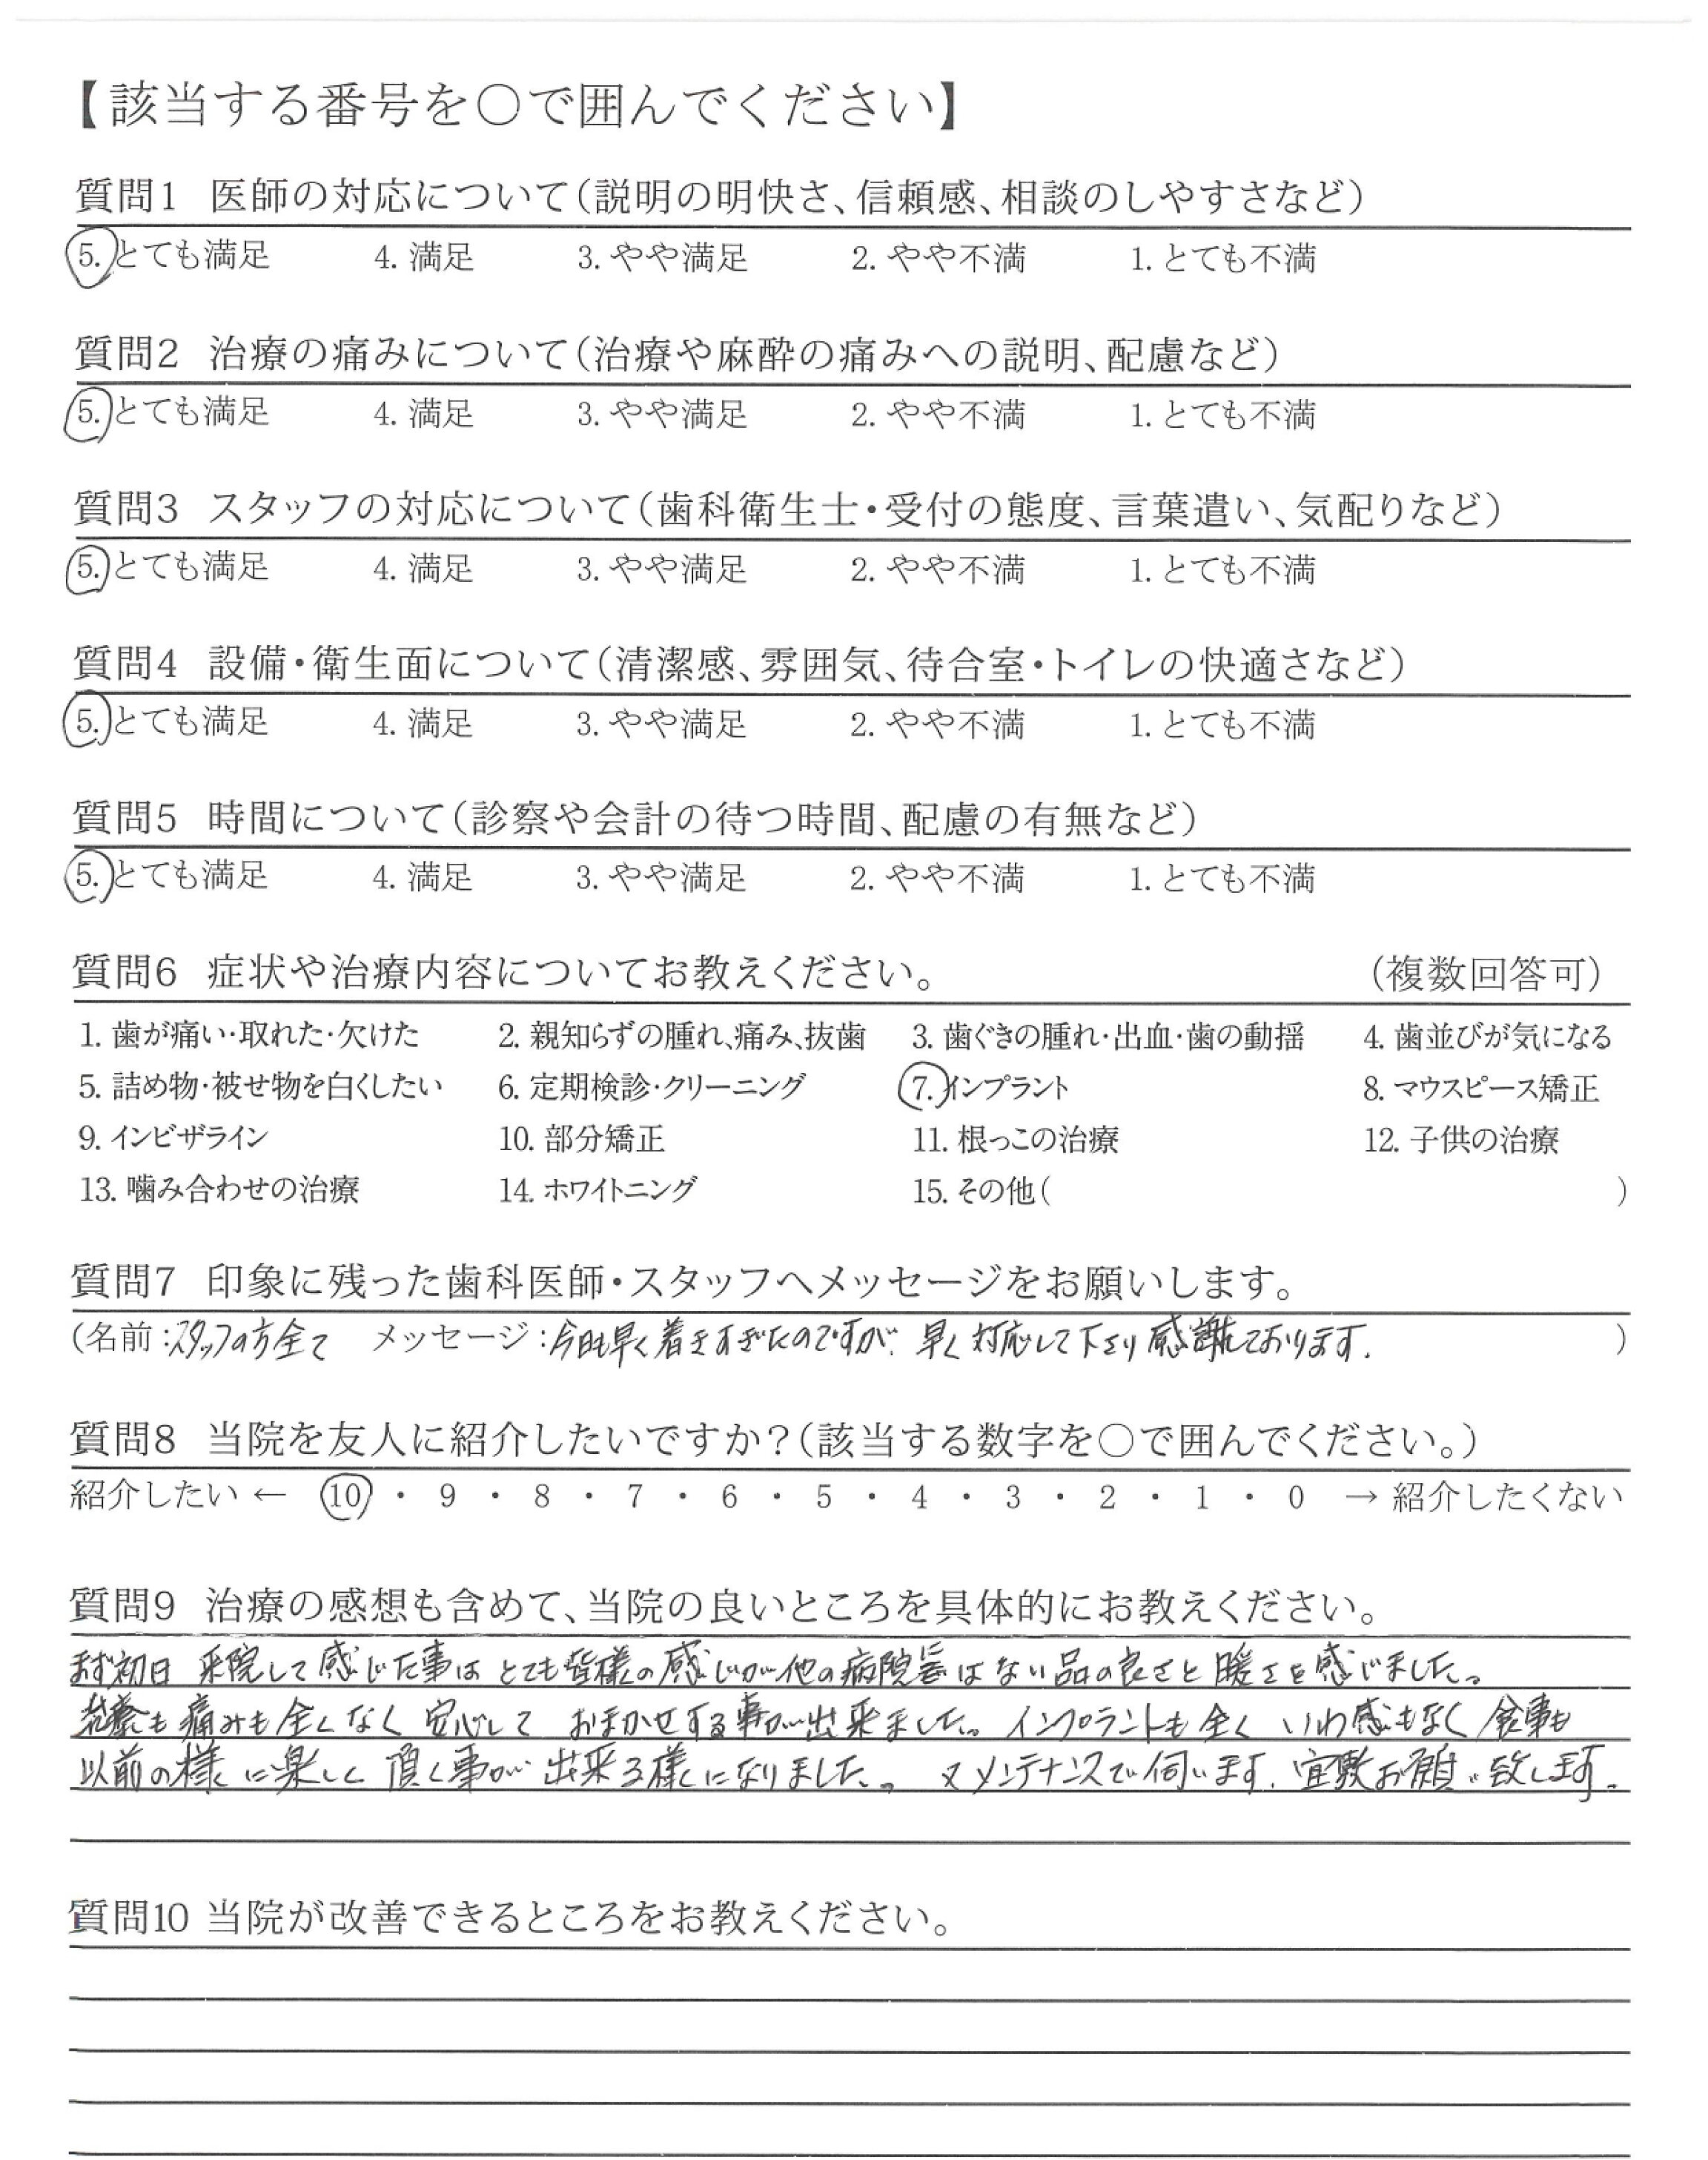 【該当する番号を〇で囲んでください】
質問1 医師の対応について(説明の明快さ、信頼感、相談のしやすさなど)
5. とても満足 4. 満足 3. やや満足 2. やや不満 1. とても不満
質問2 治療の痛みについて(治療や麻酔の痛みへの説明、配慮など)
5. とても満足 4. 満足 3. やや満足 2. やや不満 1. とても不満
質問3 スタッフの対応について(歯科衛生士・受付の態度、言葉遣い、気配りなど)
5. とても満足 4. 満足 3. やや満足 2. やや不満 1. とても不満
質問4 設備・衛生面について(清潔感、雰囲気、待合室・トイレの快適さなど)
5. とても満足 4. 満足 3. やや満足 2. やや不満 1. とても不満
質問5 時間について(診察や会計の待つ時間、配慮の有無など)
5. とても満足 4. 満足 3. やや満足 2. やや不満 1. とても不満
質問6 症状や治療内容についてお教えください。 (複数回答可)
1. 歯が痛い・取れた・欠けた 2. 親知らずの腫れ、痛み、抜歯 3. 歯ぐきの腫れ・出血・歯の動揺 4. 歯並びが気になる
5. 詰め物・被せ物を白くしたい 6. 定期検診・クリーニング 7. インプラント 8. マウスピース矯正
9. インビザライン 10. 部分矯正 11. 根っこの治療 12. 子供の治療
13. 噛み合わせの治療 14. ホワイトニング 15. その他( )
質問7 印象に残った歯科医師・スタッフへメッセージをお願いします。
(名前:スタッフの方全て メッセージ:今日も早く着きすぎたのですが、早く対応して下さり感謝しております. )
質問8 当院を友人に紹介したいですか?(該当する数字を〇で囲んでください。)
紹介したい ← 10 ・ 9 ・ 8 ・ 7 ・ 6 ・ 5 ・ 4 ・ 3 ・ 2 ・ 1 ・ 0 → 紹介したくない
質問9 治療の感想も含めて、当院の良いところを具体的にお教えください。
まず初日 来院して感じた事は とても皆様の感じが他の病院はない品の良さと暖さを感じました。
治療も痛みも全くなく 安心して おまかせする事が出来ました。インプラントも全く いわ感もなく 食事も
以前の様に楽しく 頂く事が 出来る様になりました。 又メンテナンスで伺います. 宜敷お願い致します.
質問10 当院が改善できるところをお教えください。